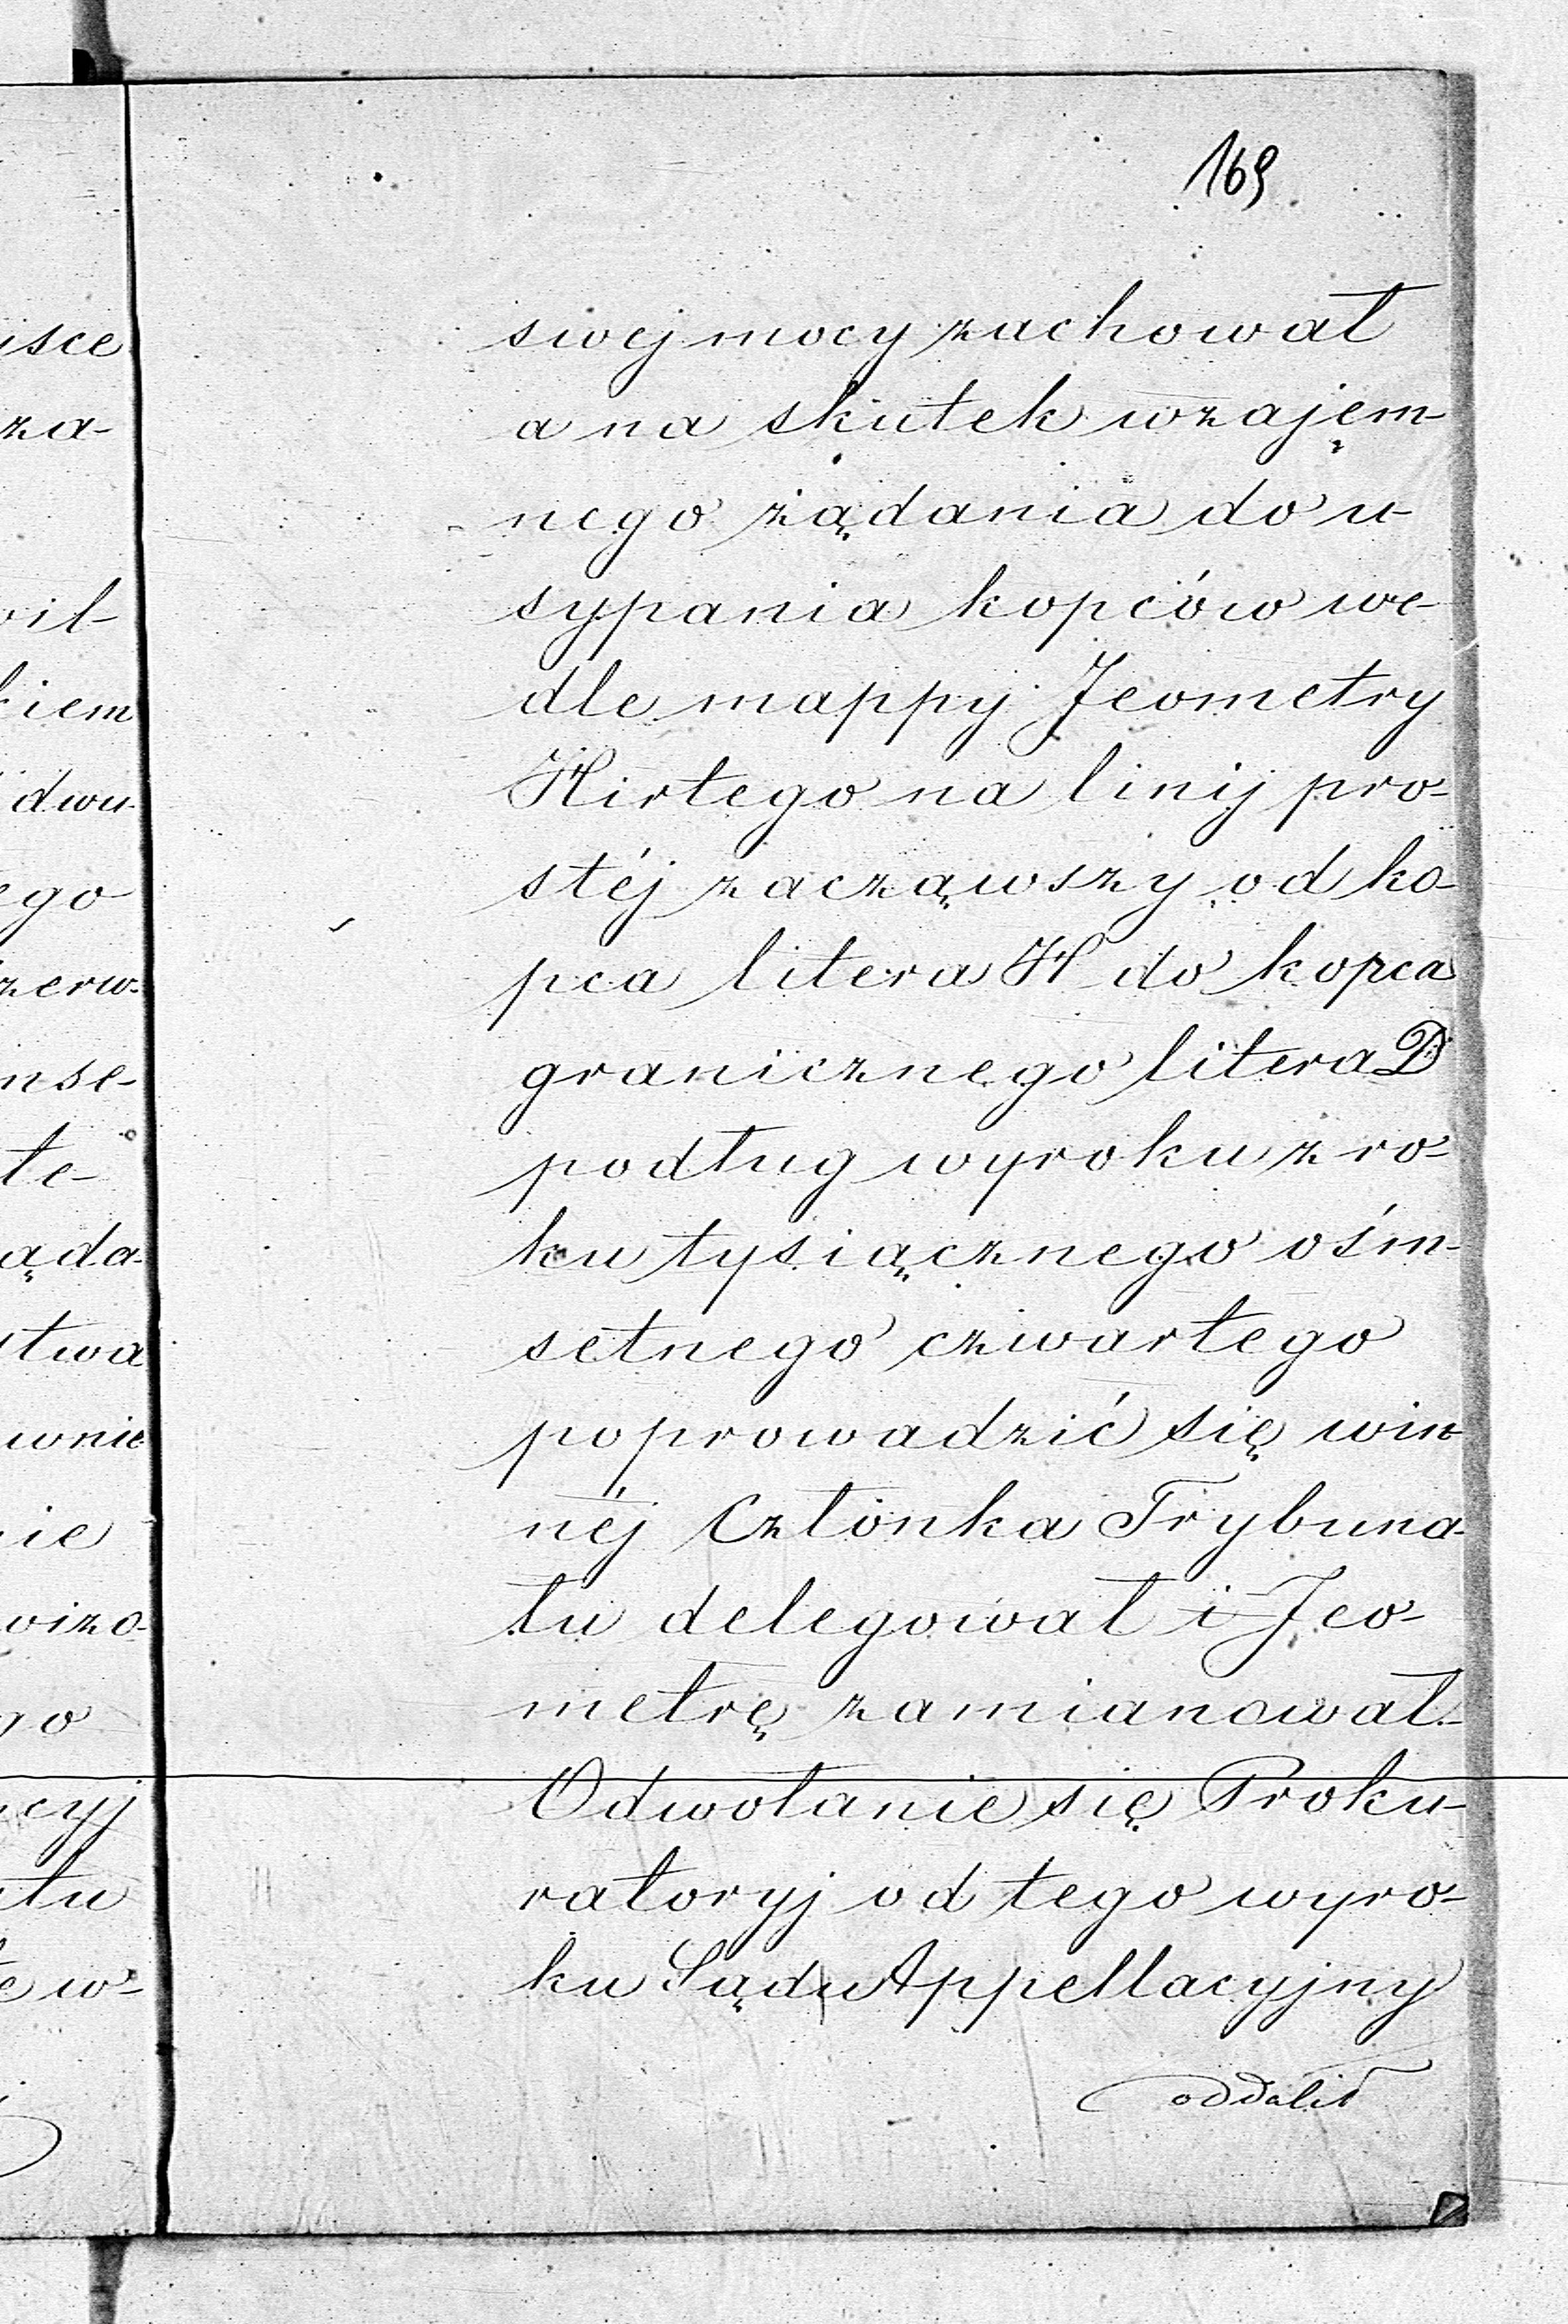 169
isce
za-
wil-
kiem
dwu-
ego
zerw-
nse-
te-
ąda-
stwa
wnie
nie
wizo-
go
acyj
atu
tew-
swej mocy zachował
a na skutek wzajęm-
nego żądania do u-
sypania kopców we-
dle mappy Jeometry
Hirtego na linij pro-
stéj zacząwszy od ko-
pca litera H do kopca
granicznego litera D
podług wyroku z ro-
ku tysiącznego ośm-
setnego czwartego
poprowadzić się win-
néj Członka Trybuna-
łu delegował i Jeo-
metrę zamianował.-
Odwołanie się Proku-
ratoryj od tego wyro-
ku Sądu Appellacyjny
oddalił